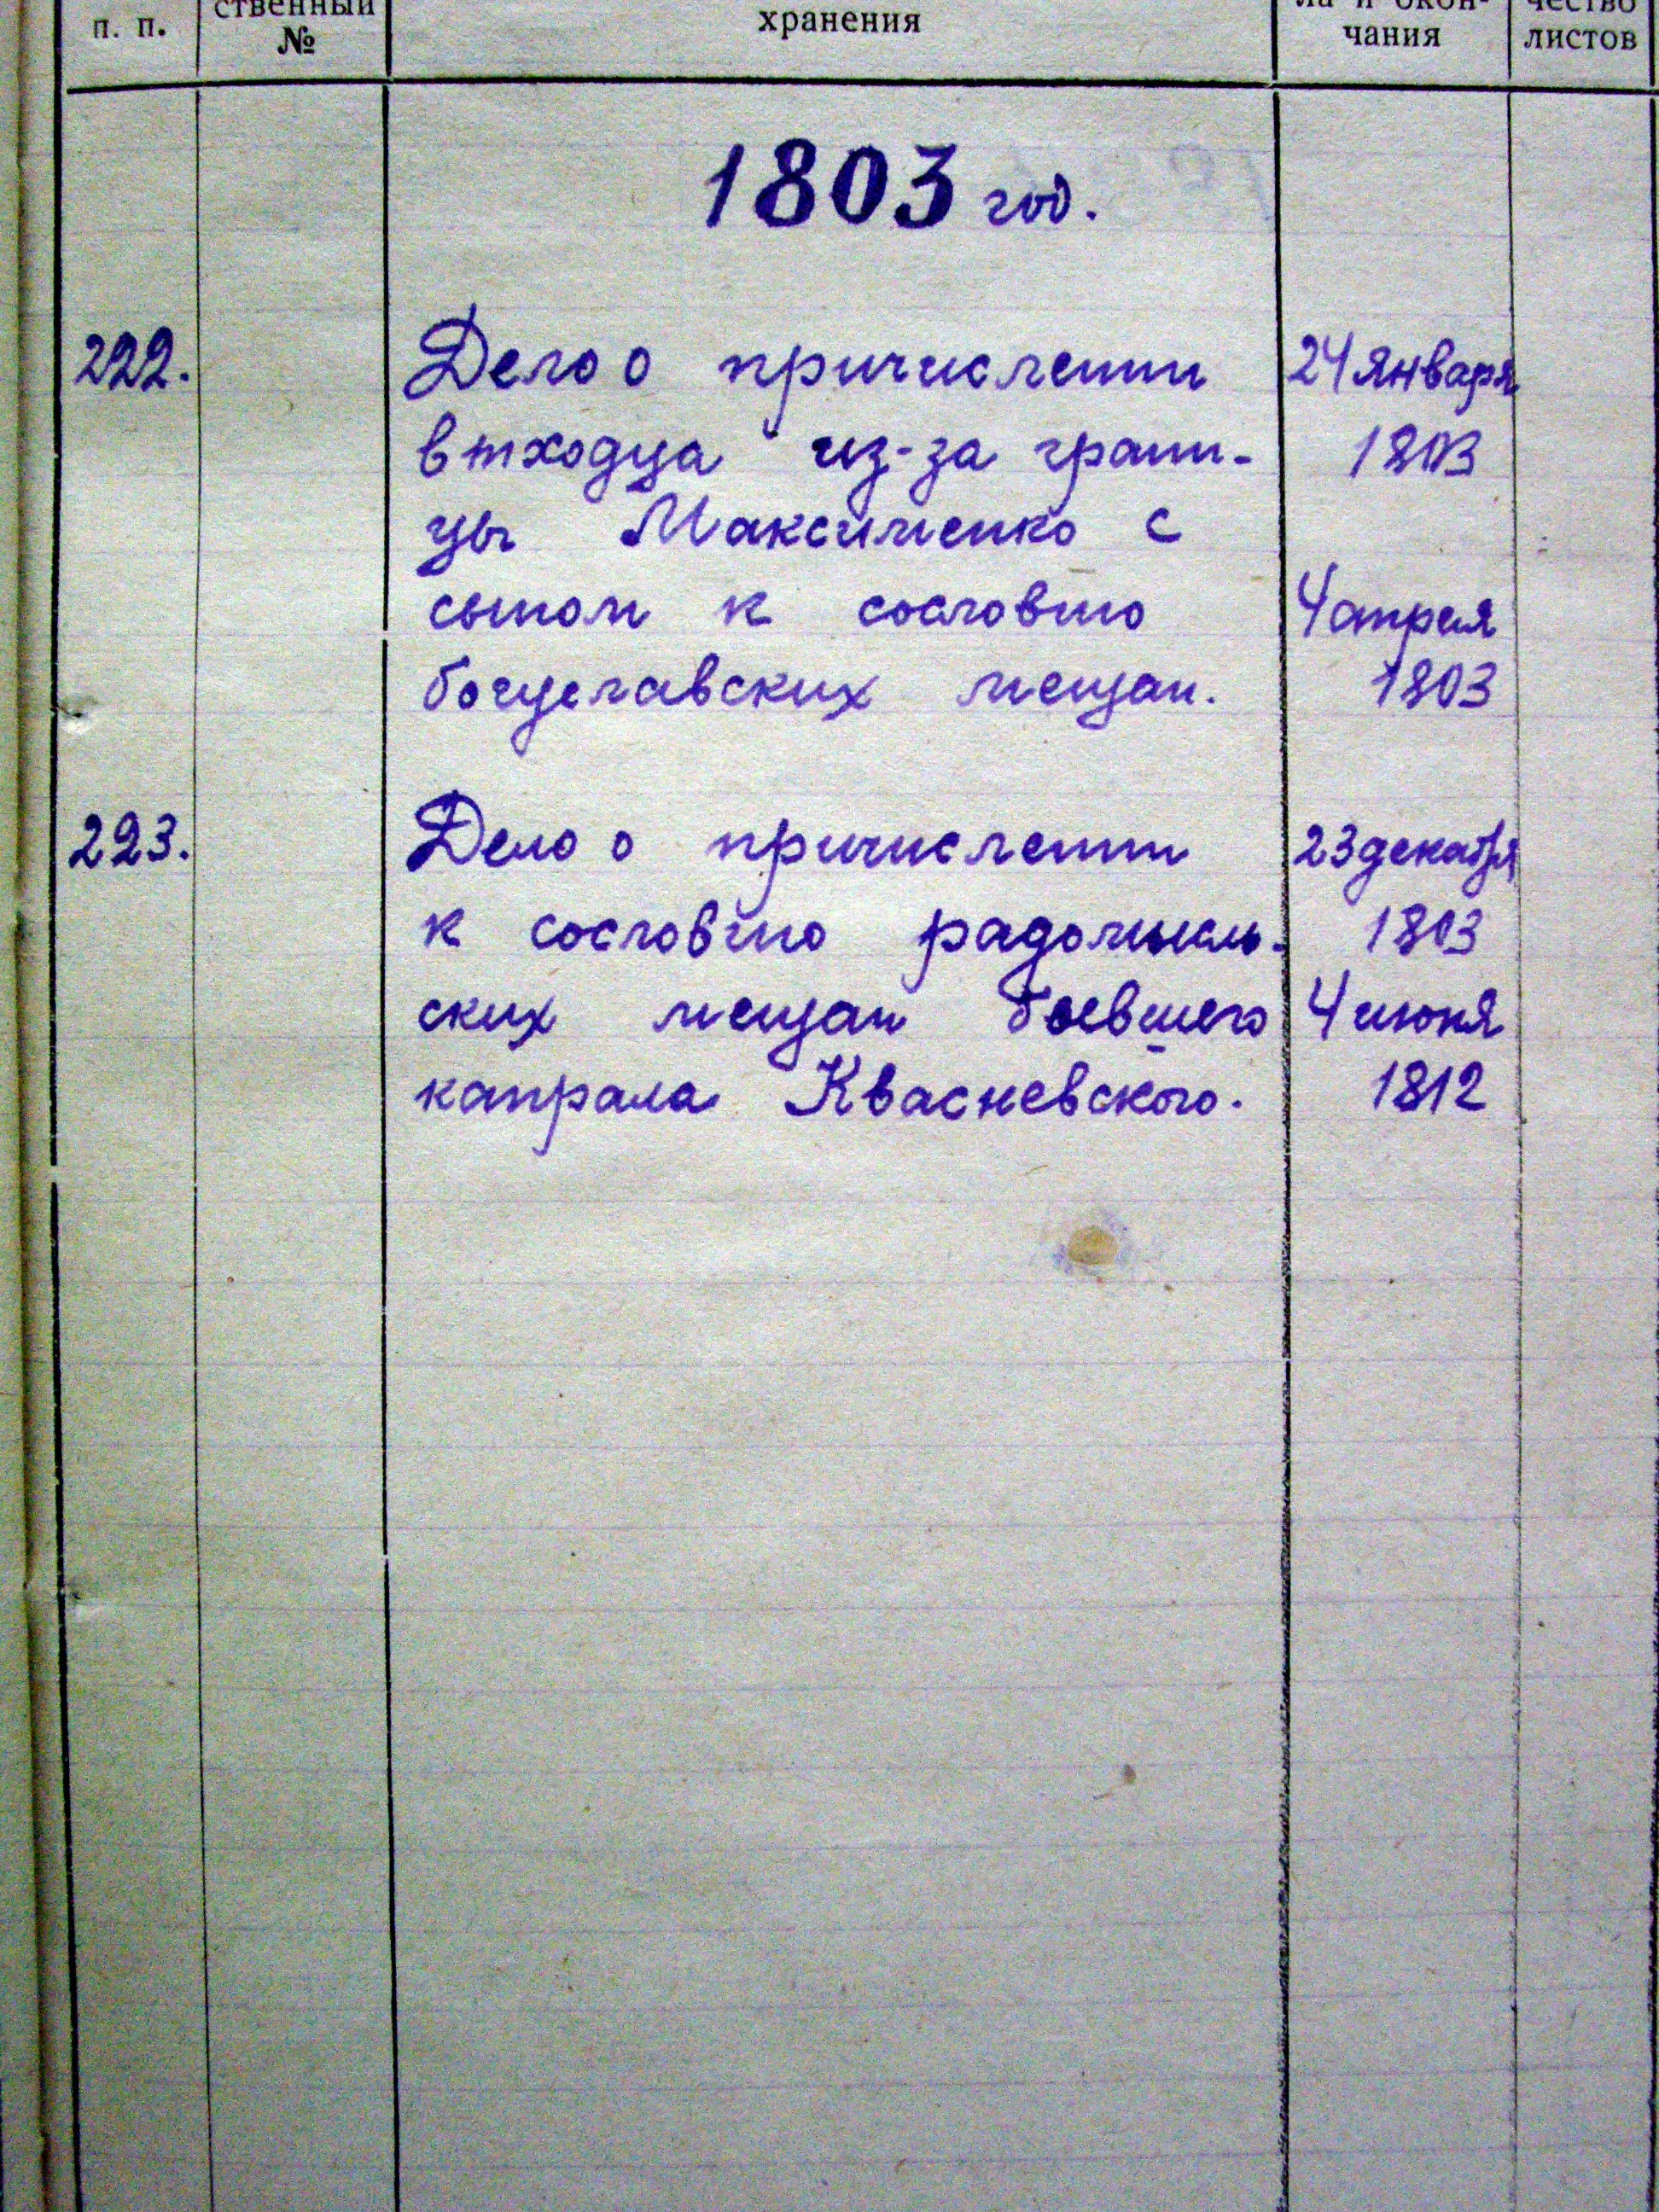 п. п.
ственный
№
хранения
ла и окон-
чания
чество
листов
1803 год.
222.
Дело о причислении
выходца из-за грани-
цы Максименко с
сыном к сословию
богуславских мещан.
24 января
1803
4 апреля
1803
223.
Дело о причислении
к сословию радомысль-
ских мещан бывшего
капрала Квасневского.
23 декабря
1803
4 июня
1812